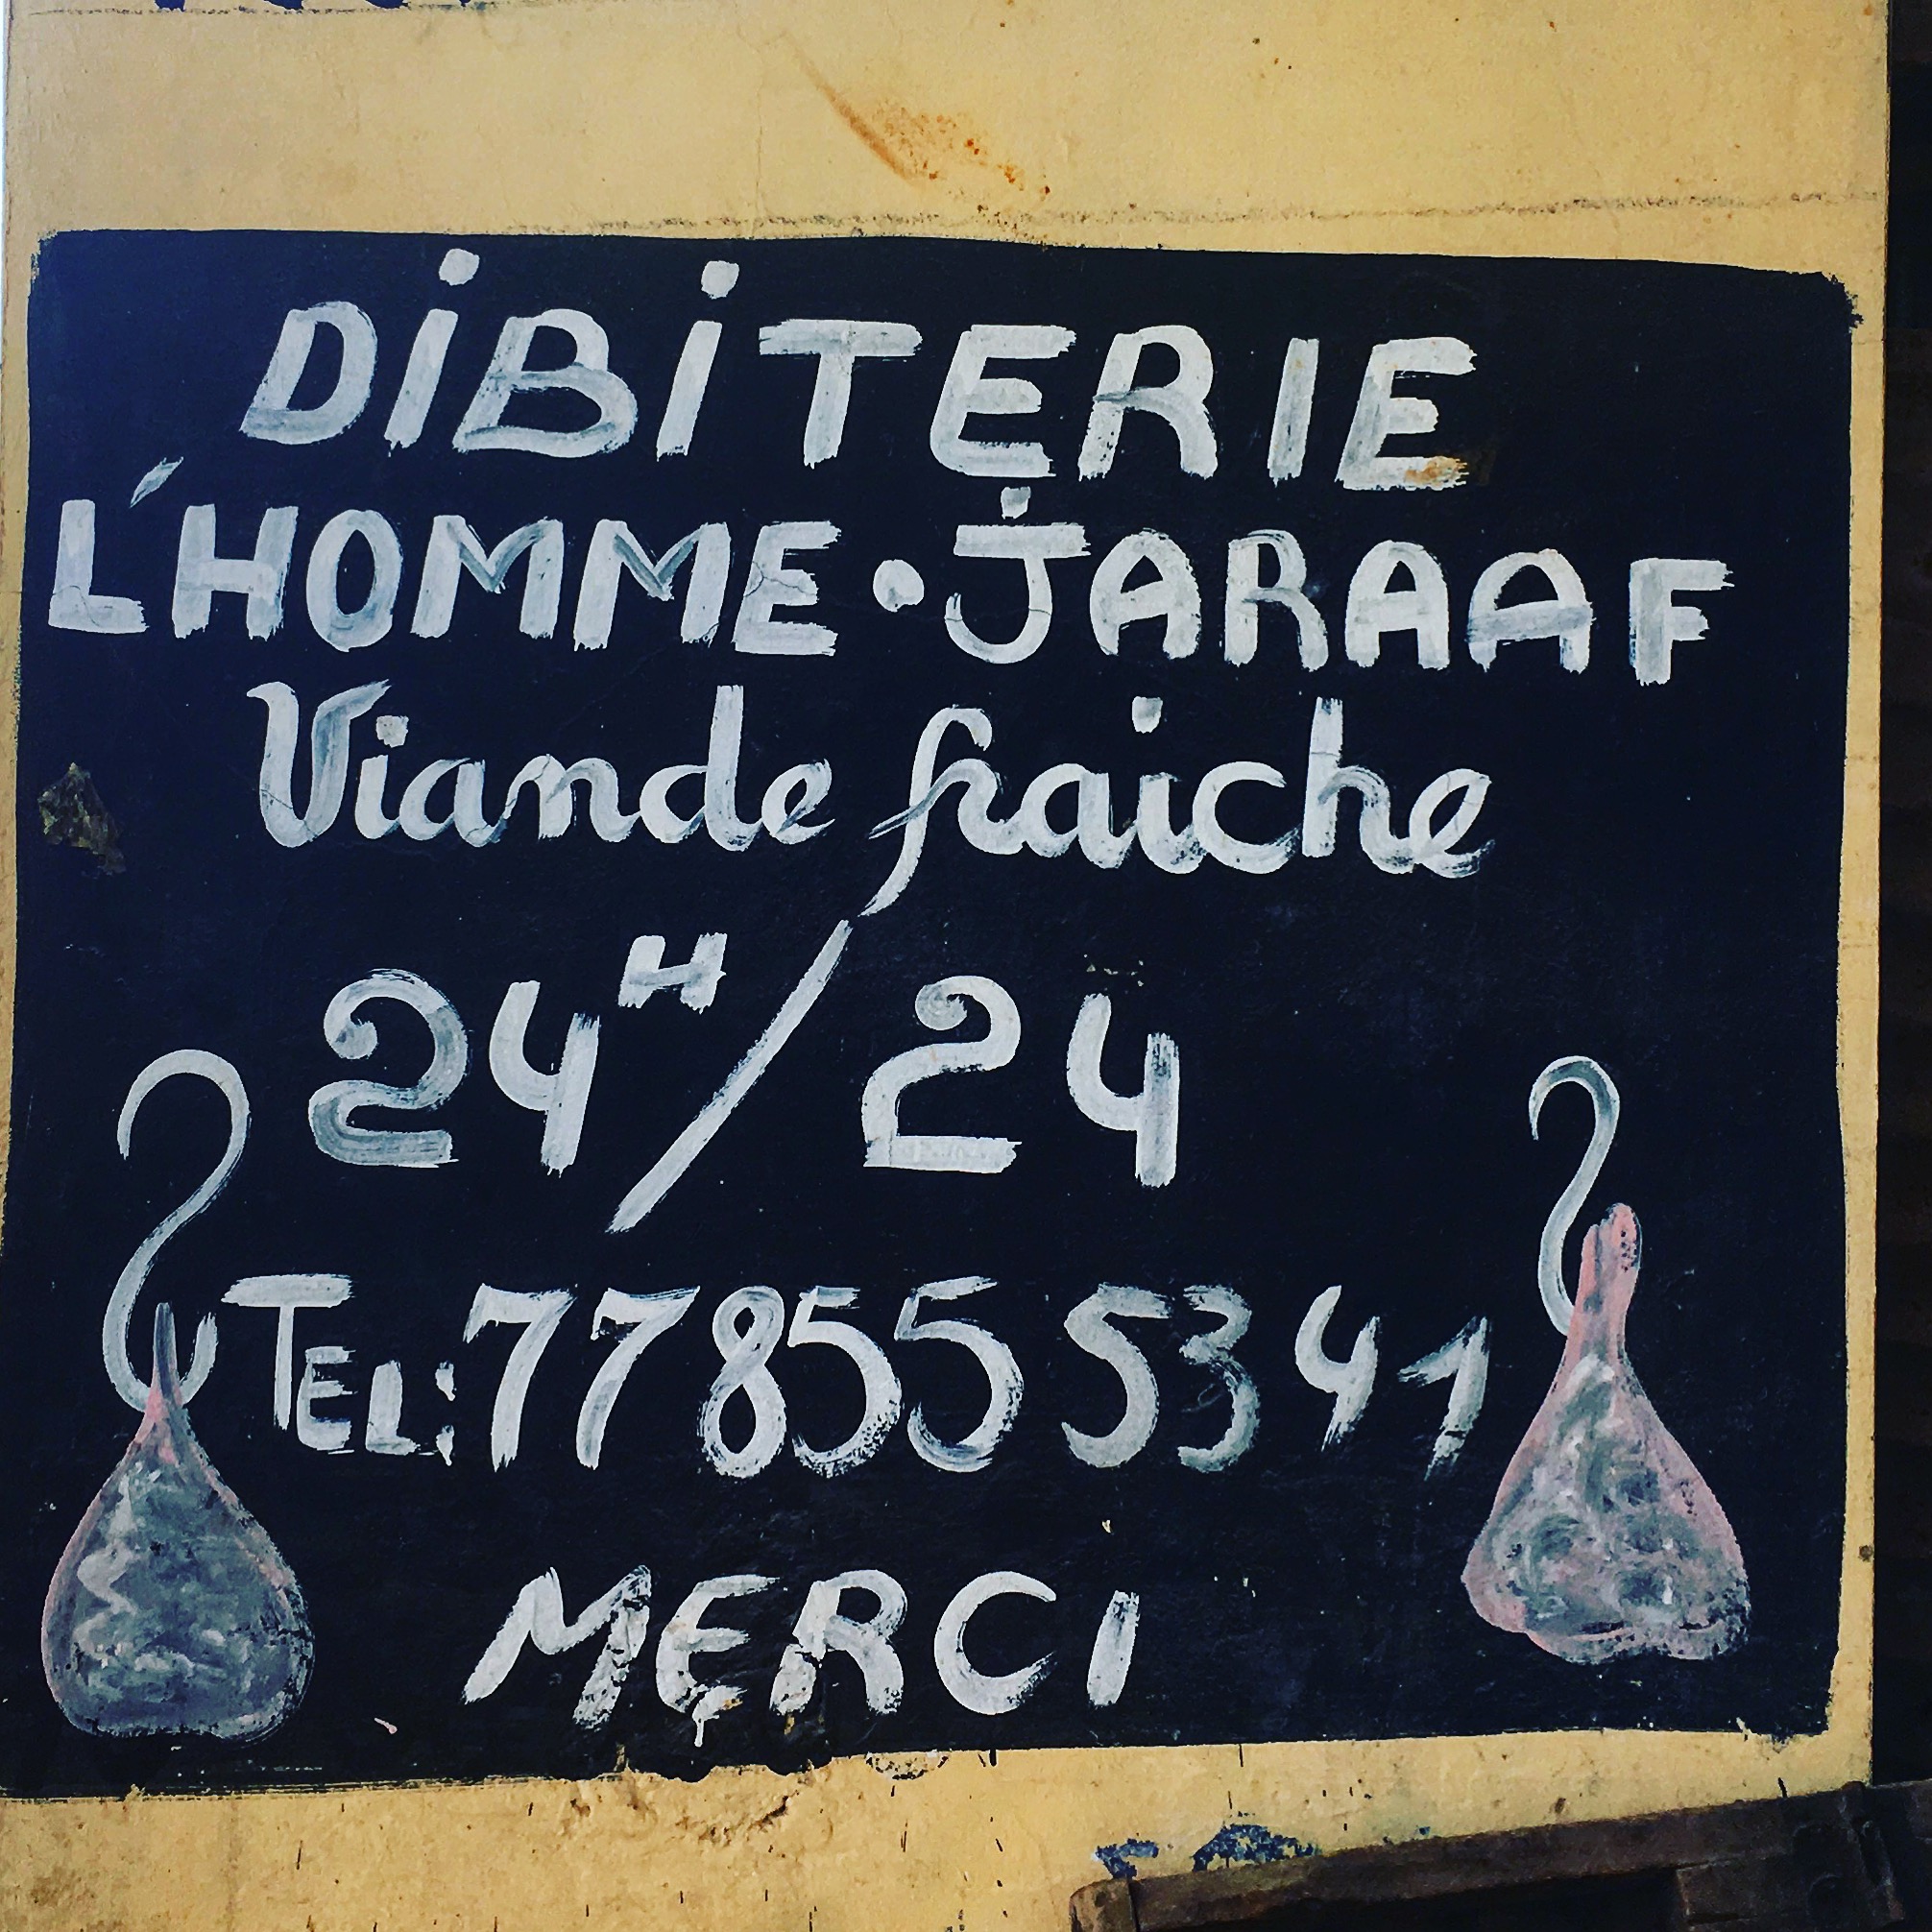 DiBiTERIE
L'HOMME • JARAAF
Viande fraiche
24H/24
TEL: 77 855 53 41
MERCI